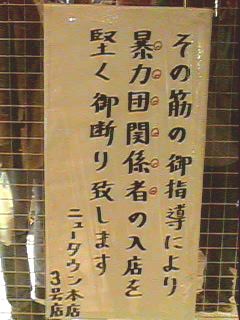 その筋の御指導により
暴力団関係者の入店を
堅く御断り致します
ニュータウン本店
3号店